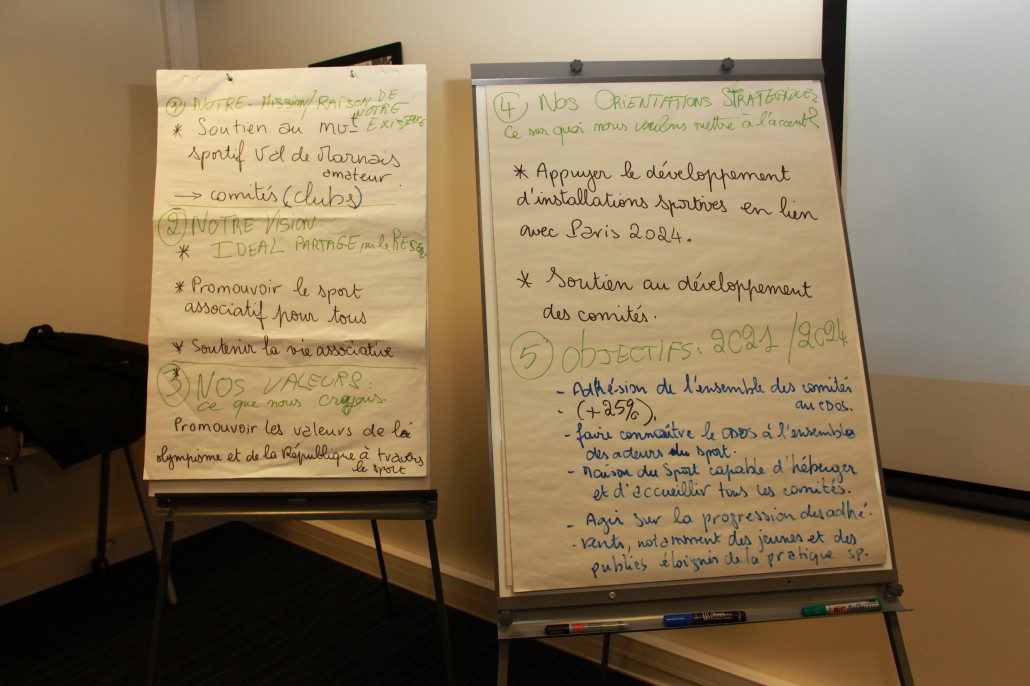 ① NOTRE MISSION/RAISON DE
NOTRE
EXISTENCE
* Soutien au mvt
sportif Val de Marnais
amateur.
→ comités (clubs)
② NOTRE VISION:
* IDEAL PARTAGE par le RESEAU
* Promouvoir le sport
associatif pour tous
* Soutenir la vie associative
*
③ NOS VALEURS:
ce que nous croyons.
Promouvoir les valeurs de l'
olympisme et de la République à travers
le sport
④ NOS ORIENTATIONS STRATEGIQUES
Ce sur quoi nous voulons mettre à l'accent
* Appuyer le développement
d'installations sportives en lien
avec Paris 2024.
* Soutien au développement
des comités.
⑤ OBJECTIFS: 2021/2024
- Adhésion de l'ensemble des comités
au CDOS.
- (+25%).
- faire connaître le CDOS à l'ensemble
des acteurs du sport.
- Maison du Sport capable d'héberger
et d'accueillir tous les comités.
- Agir sur la progression des adhé-
- rents, notamment des jeunes et des
publics éloignés de la pratique sp.